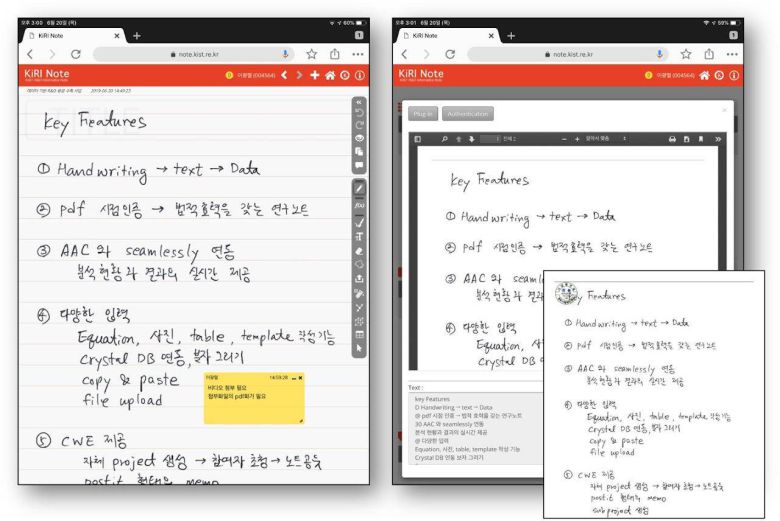 오후 3:00 6월 20일 (목)
60%
KiRI Note
note.kist.re.kr
KiRI Note
이광렬 (004564)
2019.06.20 14:49:23
TITLE
Key Features
① Handwriting → text → Data
② pdf 시점인증 → 법적효력을 갖는 연구노트
③ AAC와 seamlessly 연동
분석현황과 결과의 실시간 제공
④ 다양한 입력
Equation, 사진, table, template 작성기능
Crystal DB 연동, 분자 그리기
copy & paste
file upload
이광렬 14:59:28
비디오 첨부 필요
첨부파일의 pdf화가 필요
⑤ CWE 제공
자체 project 생성 → 참여자 초청 → 노트공유
postit 형태의 memo
오후 3:01 6월 20일 (목)
59%
KiRI Note
note.kist.re.kr
KiRI Note
이광렬 (004564)
Plug-In
Authentication
Key Features
① Handwriting → text → Data
② pdf 시점인증 → 법적효력을 갖는 연구노트
③ AAC와 seam
분석현황과
④ 다양한 입력
Equation, 사
Crystal DB 연
Text :
key Features
D Handwriting → text → Data
@ pdf 시점 인증 → 법적 효력을 갖는 연구노트
30 AAC 와 seamlessly 연동
분석 현황과 결과의 실시간 제공
@ 다양한 입력
Equation, 사진, table, template 작성 기능
Crystal DB 연동 보자 그리기
Key Features
① Handwriting → text → Data
② pdf 시점인증 → 법적효력을 갖는 연구노트
③ AAC와 seamlessly 연동
분석현황과 결과의 실시간 제공
④ 다양한 입력
Equation, 사진, table, template 작성기능
Crystal DB 연동, 분자 그리기
copy & paste
file upload
⑤ CWE 제공
자체 project 생성 → 참여자 초청 → 노트공유
postit 형태의 memo
subproject 생성